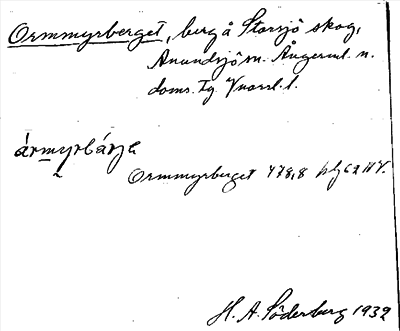 Ormmyrberget, berg å Storsjö skog,
Anundsjö sn. Ångerml. n.
doms. tg. Vnorrl. l.
ármyrbárje
Ormmyrberget 478,8 blg 62 HV.
H. A. Söderberg 1932